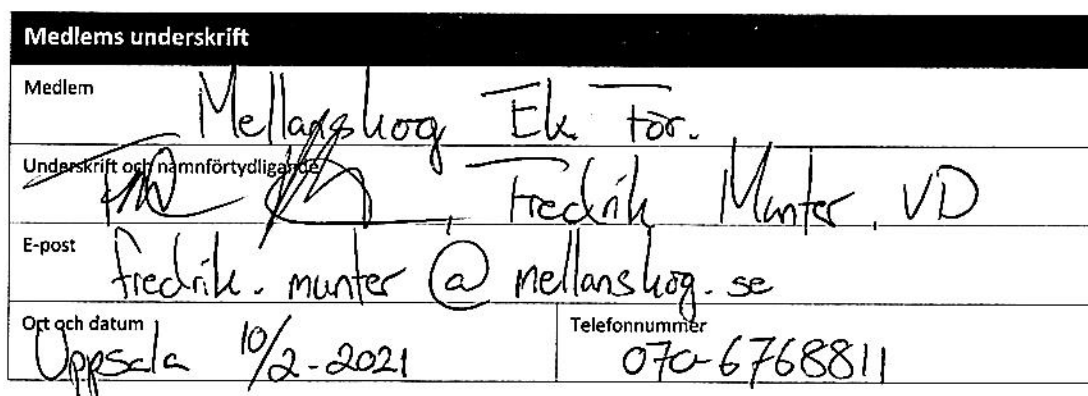 Medlems underskrift
Medlem
Mellanskog Ek. För.
Underskrift och namnförtydligande
Fredrik Munter, VD
E-post
fredrik.munter@mellanskog.se
Ort och datum
Telefonnummer
Uppsala 10/2-2021
070-6768811